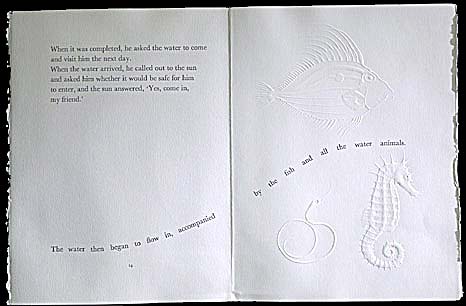 When it was completed, he asked the water to come
and visit him the next day.
When the water arrived, he called out to the sun
and asked him whether it would be safe for him
to enter, and the sun answered, 'Yes, come in,
my friend.'
The water then began to flow in, accompanied
by the fish and all the water animals.